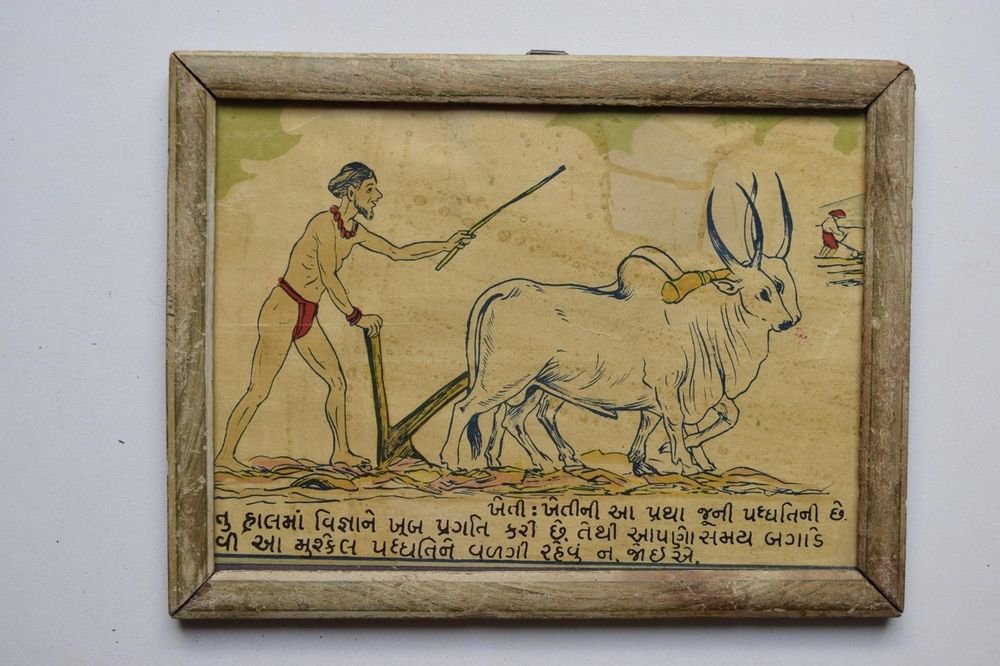 ખેતી : ખેતીની આ પ્રથા જૂની પધ્ધતિની છે.
નુ હાલમાં વિજ્ઞાને ખૂબ પ્રગતિ કરી છે. તેથી આપણો સમય બગાડે
વી આ મુશ્કેલ પધ્ધતિને વળગી રહેવું ન. જોઇએ.